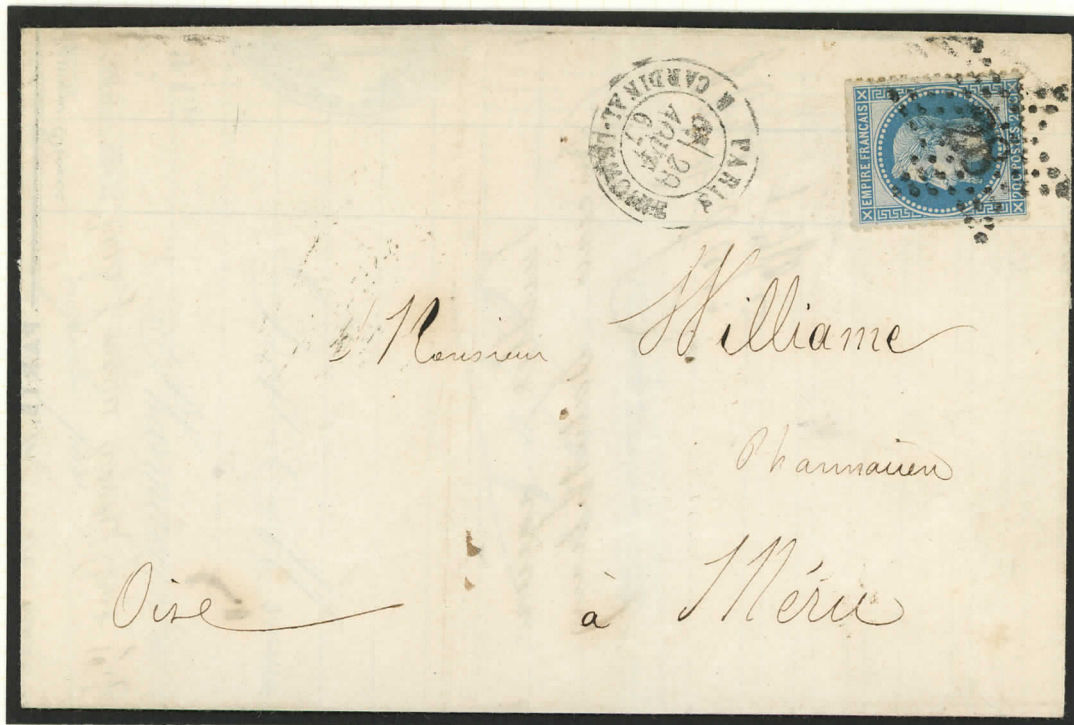 PARIS
R. CARDINAL-LEMOINE
29
AOUT
67
EMPIRE FRANCAIS
20 C POSTES 20 C
Monsieur Williame
Pharmacien
à Méru
Oise